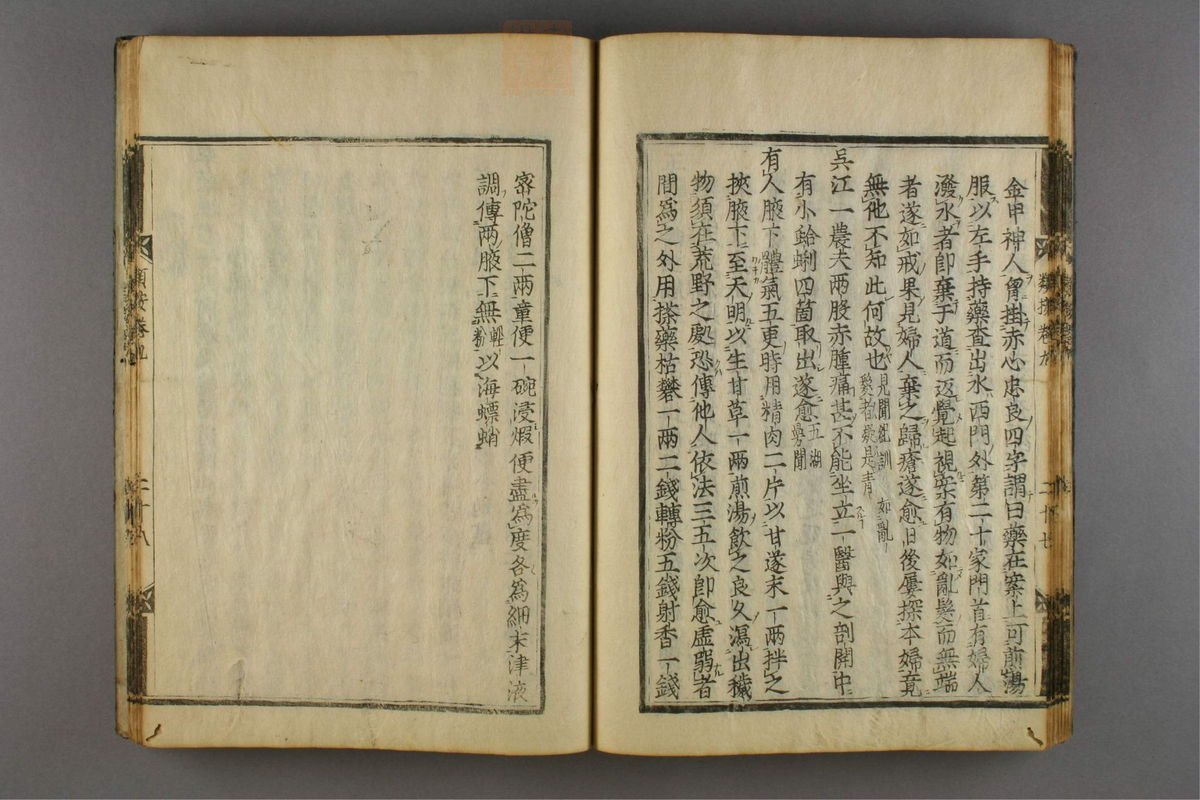 金甲神人胷掛赤心忠良四字謂曰藥在案上可煎湯
服以左手持藥査出水西門外第二十家門首有婦人
潑水者卽棄于道而返覺起視案有物如亂髮而無端
者遂如戒果見婦人棄之歸瘡遂愈日後屢探本婦竟
無他不知此何故也
見聞紀訓 如亂
髮者疑是青
吳江一農夫兩股赤腫痛甚不能坐立一醫與之剖開中
有小蛤蜊四箇取出遂愈
五湖
㝷聞
有人腋下體氣五更時用精肉二片以甘遂末一兩拌之
挾腋下至天明以生甘草一兩煎湯飲之良久瀉出穢
物須在荒野之處恐傳他人依法三五次卽愈虛弱者
間爲之外用搽藥枯礬一兩二錢轉粉五錢射香一錢
類按卷九
二十七
類按卷九
二十八
密陀僧二兩童便一碗浸煆便盡爲度各爲細末津液
調傳兩腋下無
輕粉
以海螵蛸